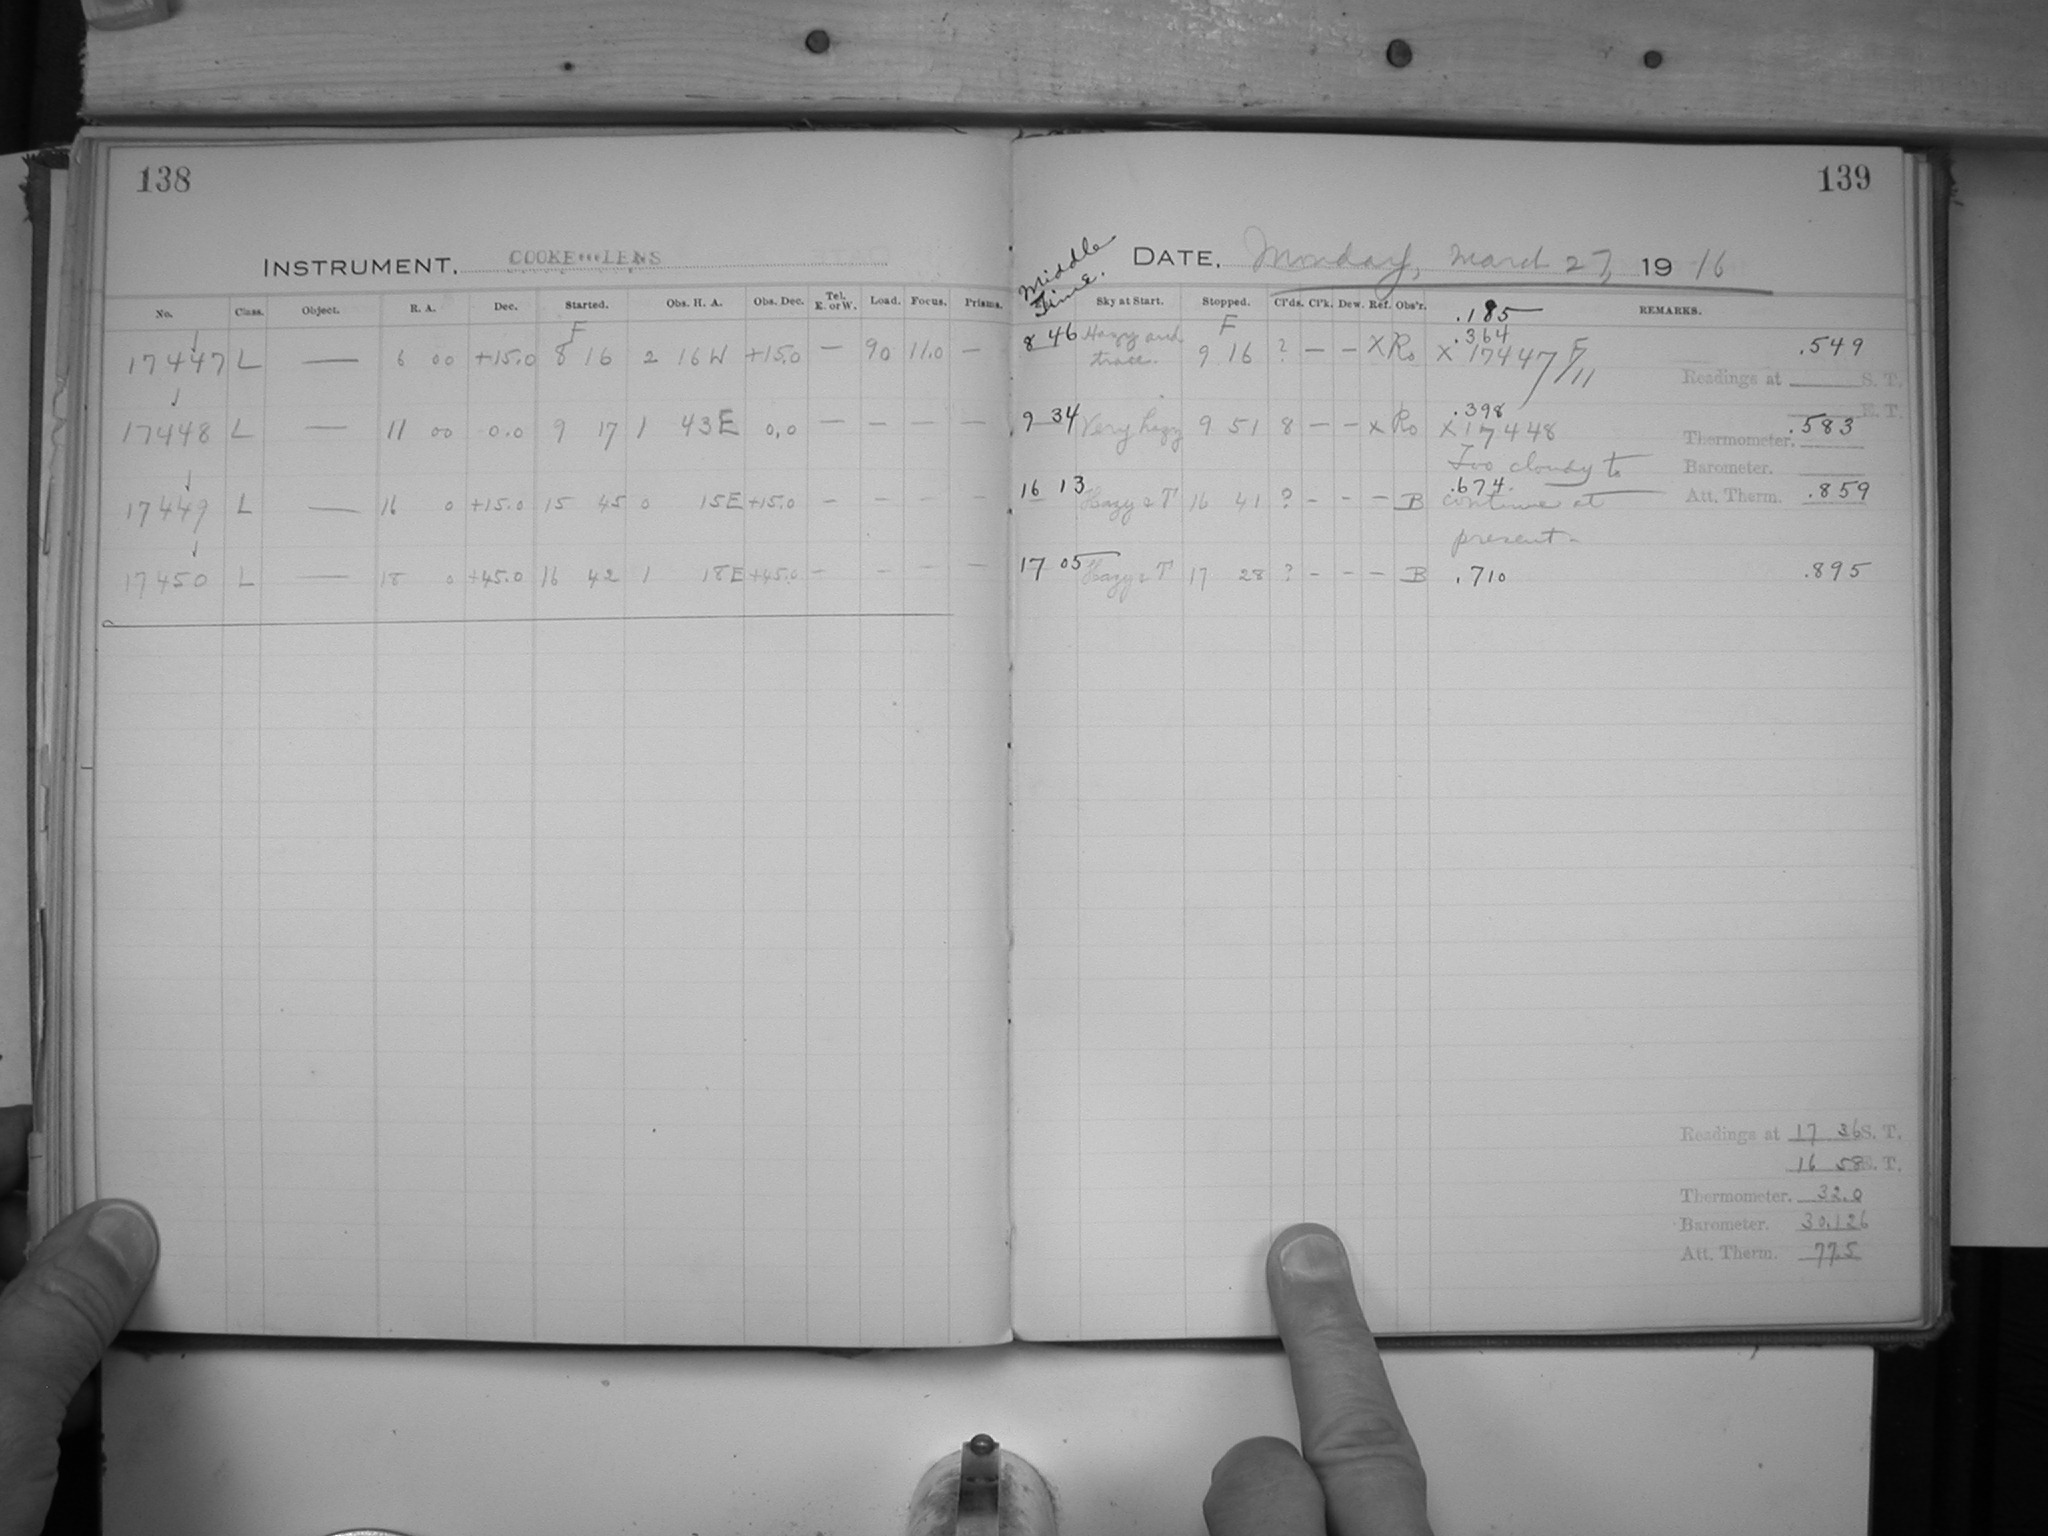 138
INSTRUMENT. COOKE LENS
No. Class. Object. R. A. Dec. Started. Obs. H. A. Obs. Dec. Tel. E. or W. Load. Focus. Prisms.
F
17447 L — 6 00 +15.0 8 16 2 16 W +15.0 — 90 11.0 —
17448 L — 11 00 0.0 9 17 1 43 E 0.0 — — — —
17449 L — 16 0 +15.0 15 45 0 15 E +15.0 — — — —
17450 L — 18 0 +45.0 16 42 1 18 E +45.0 — — — —
139
Middle Time.
DATE. Monday, March 27, 19 16
Sky at Start. Stopped. Cl'ds. Cl'k. Dew. Ref. Obs'r. REMARKS.
.185
F .364
8 46 Hazy and trace. 9 16 ? — — X Ro X 17447 F/11 .549
Readings at S. T.
E. T.
.398
9 34 Very hazy 9 51 8 — — x Ro X 17448 .583
Thermometer.
Too cloudy to
Barometer.
.674
16 13 Hazy & T 16 41 ? - - - B continue at .859
Att. Therm.
present.
17 05 Hazy & T 17 28 ? - - - B .710 .895
Readings at 17 36 S. T.
16 58 E. T.
Thermometer. 32.0
Barometer. 30.126
Att. Therm. 77.5